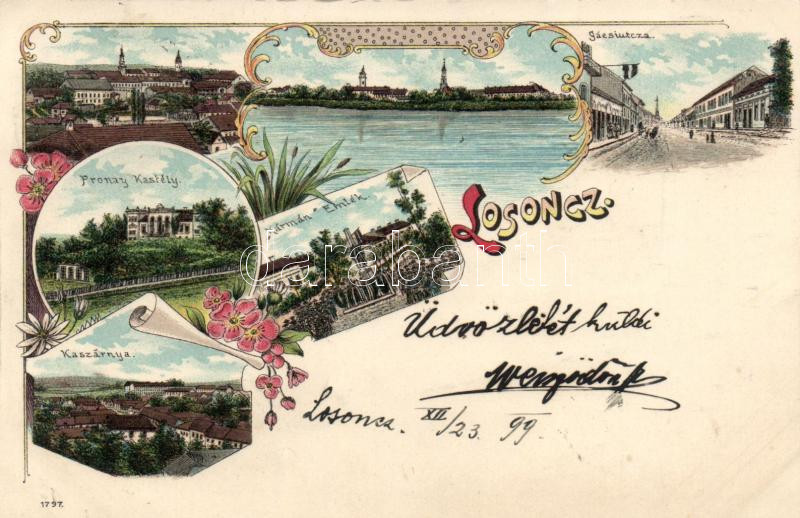 Gácsiutcza.
Pronay Kastély.
"Kármán" Emlék.
Losoncz.
darabanth
Kaszárnya.
Üdvözletét küldi
Losoncz. XII/23. 99
1797.